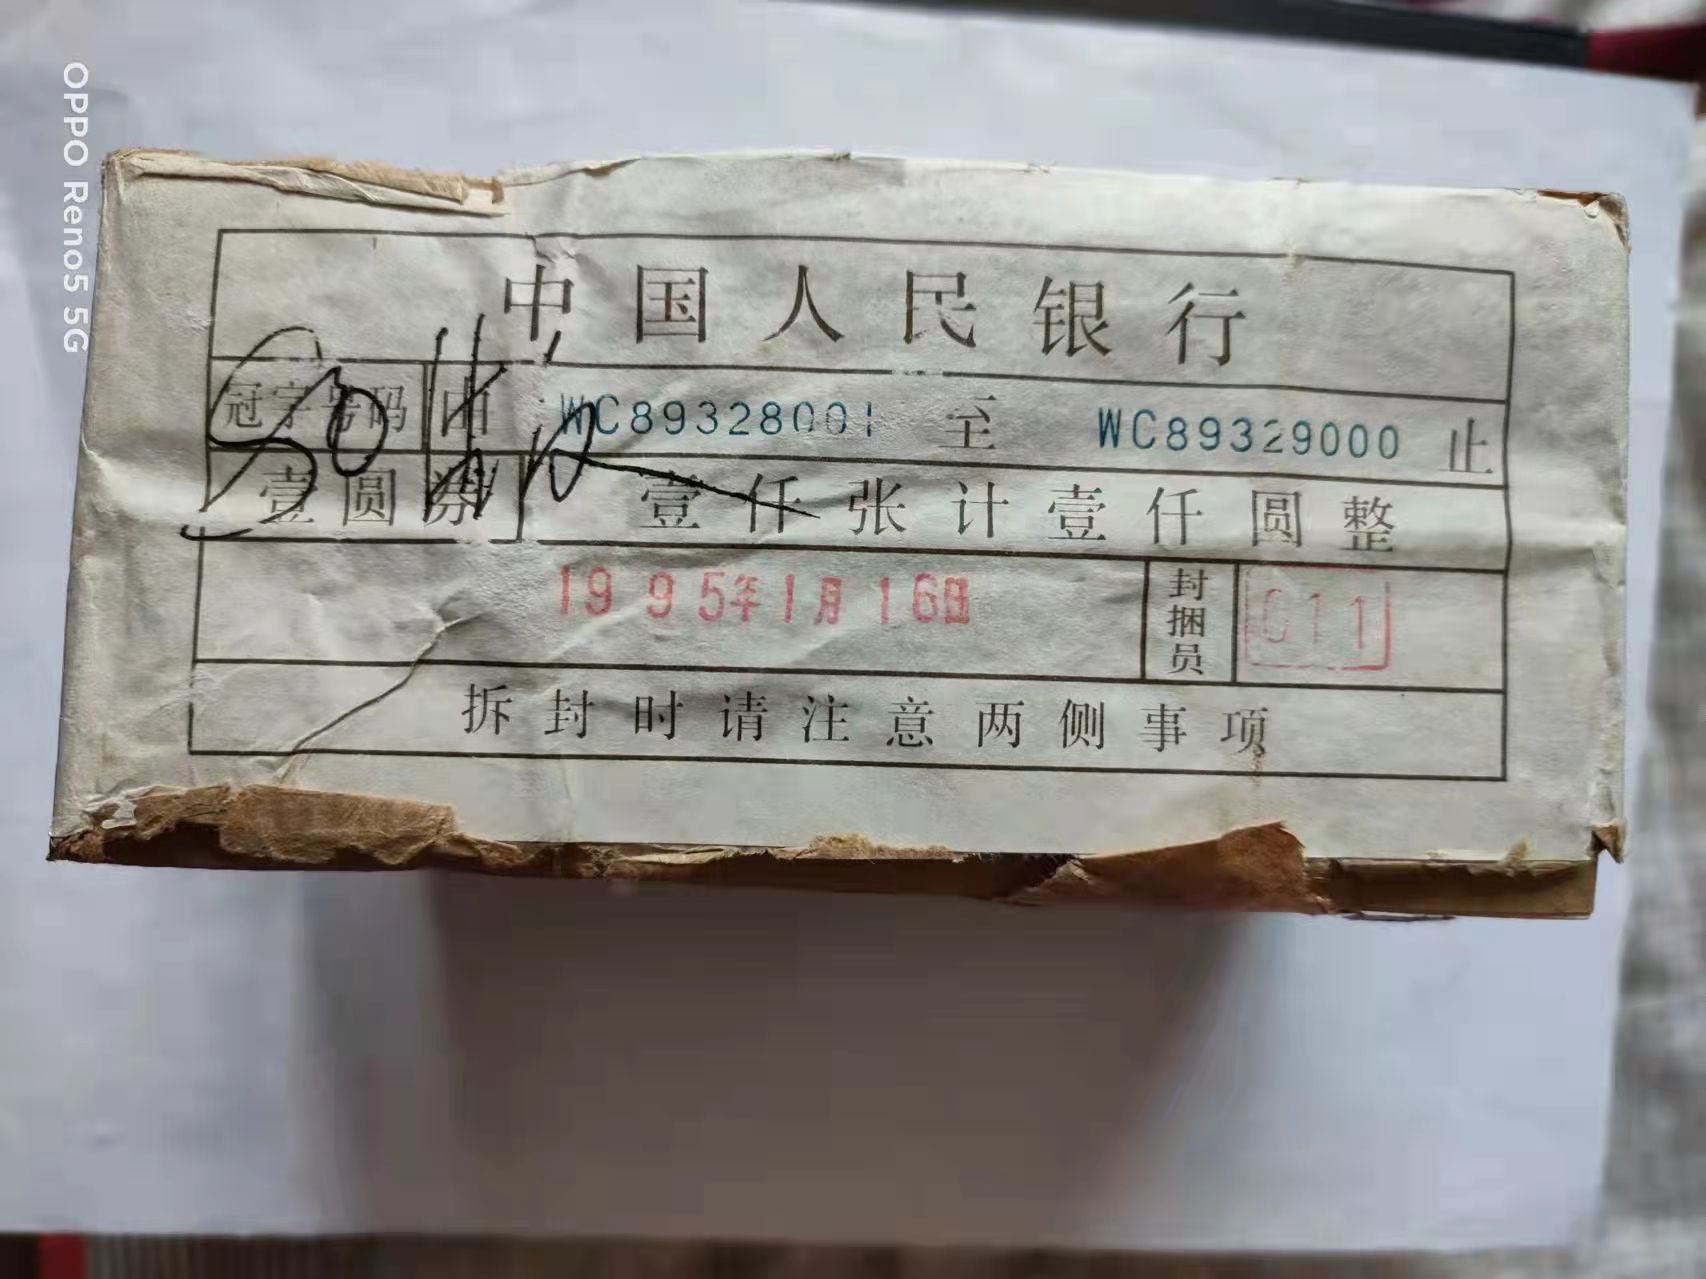 OPPO Reno5 5G
中国人民银行
冠字号码 由 WC89328001 至 WC89329000 止
壹圆券 壹仟张计壹仟圆整
1995年1月16日 封捆员 011
拆封时请注意两侧事项